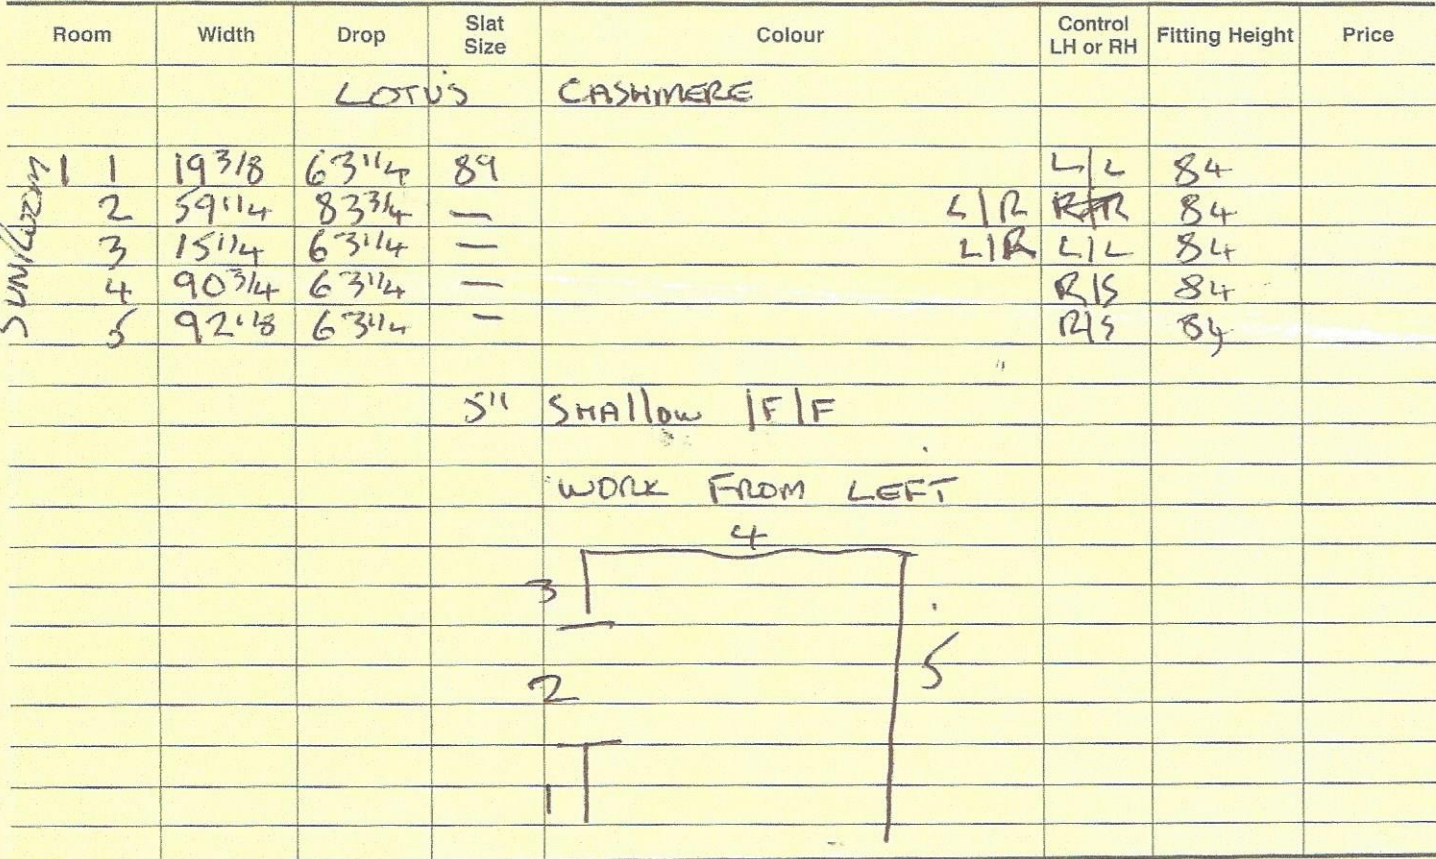 Room Width Drop Slat Size Colour Control LH or RH Fitting Height Price
LOTUS CASHMERE
SUN/ROOM
1 1 19 3/8 63 1/4 89 L/L 84
2 59 1/4 83 3/4 — L/R R/R 84
3 15 1/4 63 1/4 — L/R L/L 84
4 90 3/4 63 1/4 — R/S 84
5 92 1/8 63 1/4 — R/S 84
5" SHALLOW |F|F
WORK FROM LEFT
4
3
2
5
1